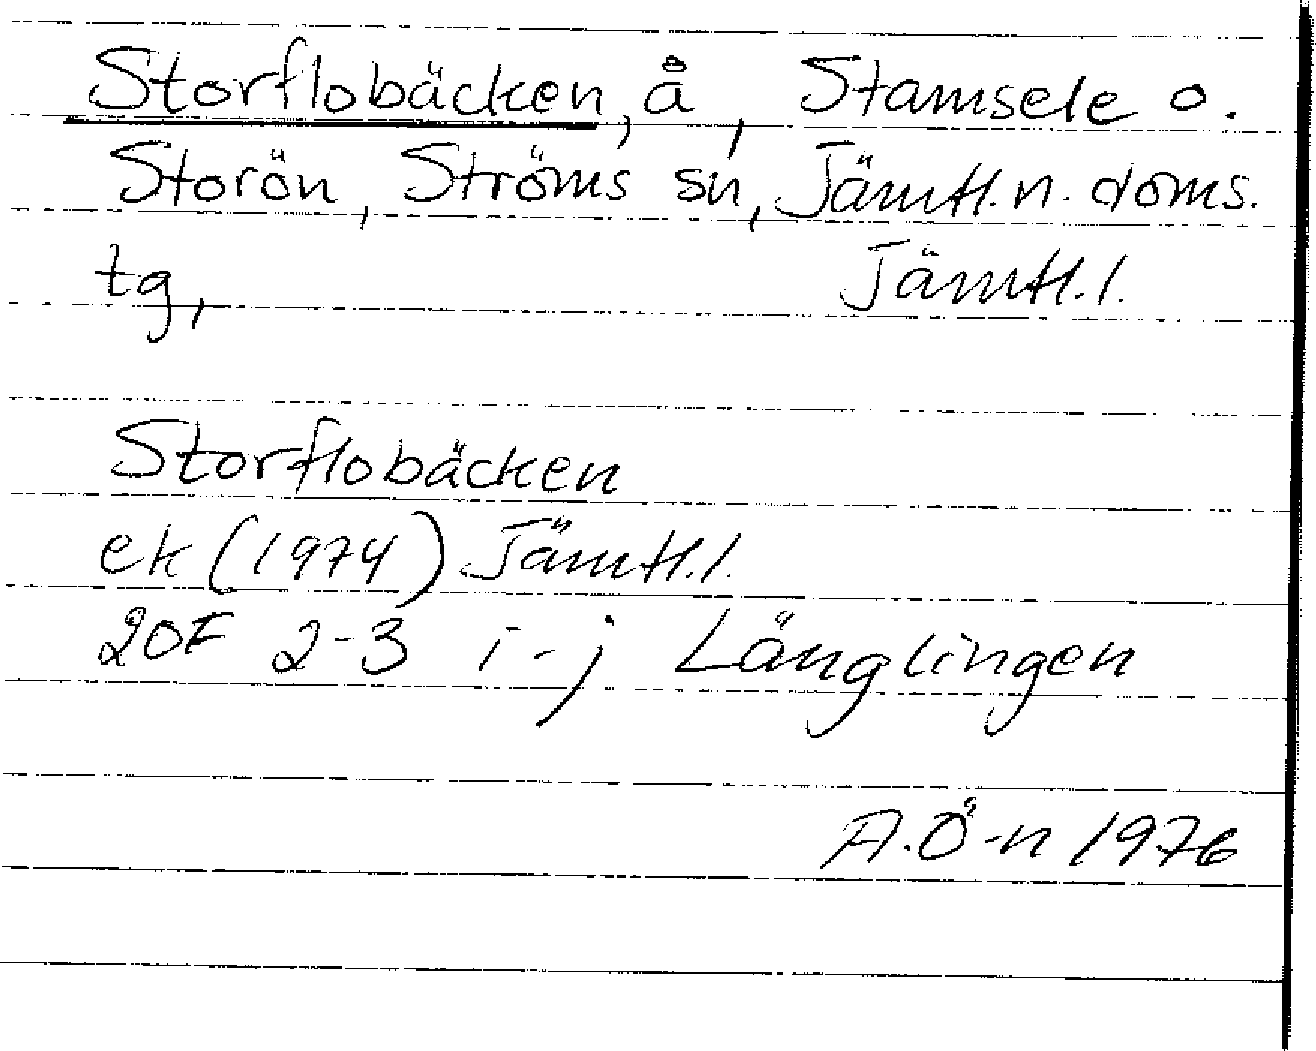 Storflobäcken, å, Stamsele o.
Storön, Ströms sn, Jämtl. n. doms.
tg, Jämtl. l.
Storflobäcken
ek (1974) Jämtl. l.
20F 2-3 i-j Länglingen
A.Ö-n 1976